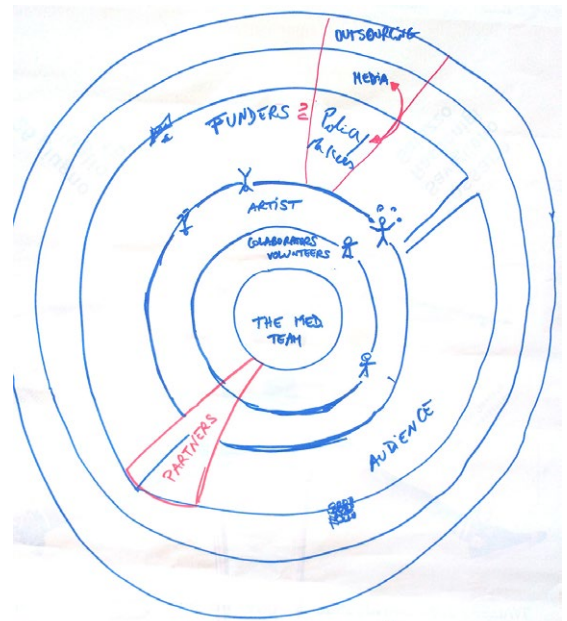 OUTSOURCING
MEDIA
FUNDERS ?
Policy
Makers
ARTIST
COLABORATORS
VOLUNTEERS
THE MED
TEAM
PARTNERS
AUDIENCE